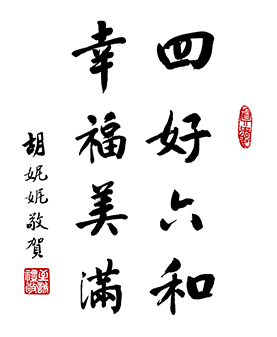 四好六和
幸福美滿
胡妮妮敬賀